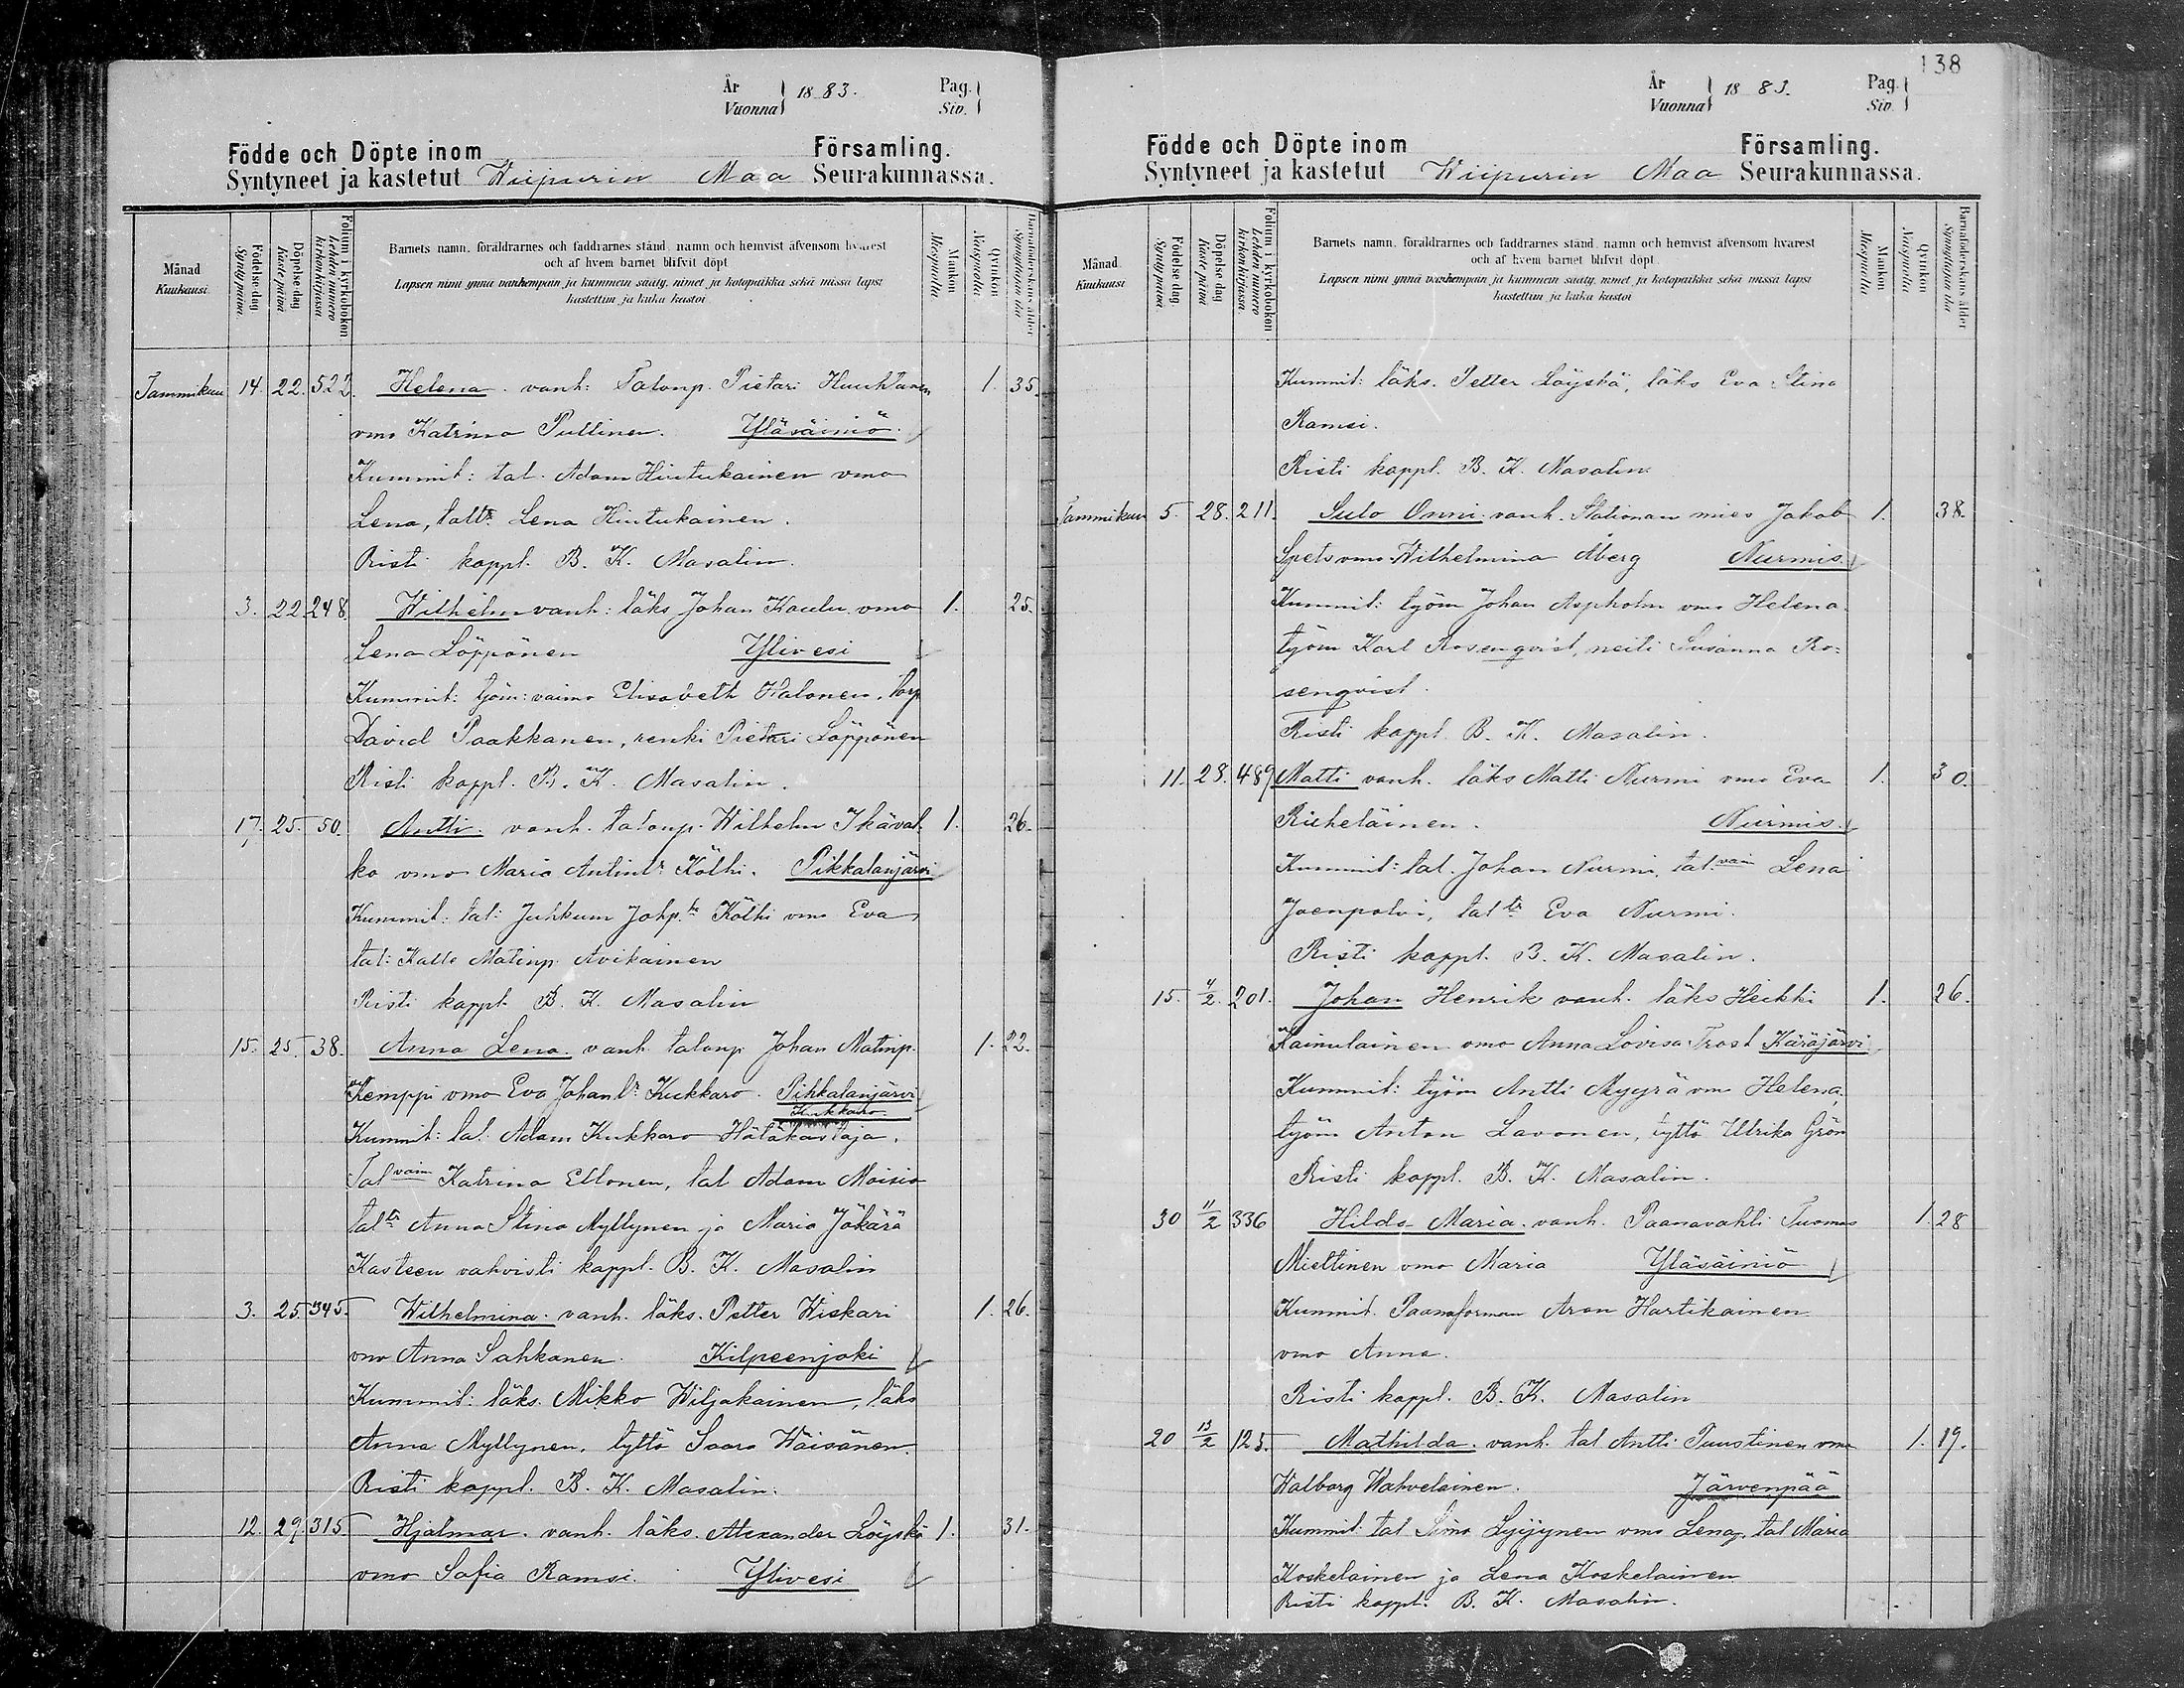 År
Vuonna } 1883.
Pag.
Siv.
Födde och Döpte inom Församling.
Syntyneet ja kastetut Wiipurin Maa Seurakunnassa.
Månad
Kuukausi
Födelse dag
Syntypäivä
Döpelse dag
Kaste päivä
Folium i kyrkoboken
Lehden numero kirkonkirjassa
Barnets namn, föräldrarnes och faddrarnes stånd, namn och hemvist äfvensom hvarest
och af hvem barnet blifvit döpt
Lapsen nimi ynnä vanhempain ja kummein sääty, nimet ja kotopaikka sekä missä lapsi
kastettiin ja kuka kastoi
Mankön
Miespuolta
Qvinkön
Naispuolta
Barnaföderskans ålder
Synnyttäjän ikä
Tammikuu 14. 22. 522. Helena. vanh: Talonp. Pietari Huuhtanen 1. 35.
vmo Katrina Pullinen. Yläsäiniö.
Kummit: tal. Adam Hintukainen vmo
Lena, taltr Lena Hintukainen.
Risti kappl. B. K. Masalin.
3. 22 248 Wilhelm vanh: läks Johan Kaulu vmo 1. 25.
Lena Löppönen Ylivesi
Kummit: työm: vaimo Elisabeth Halonen, torp
David Paakkanen, renki Pietari Löppönen
Risti kappl. B. K. Masalin.
17. 25. 50. Antti. vanh. talonp. Wilhelm Ikäval- 1. 26.
ko vmo Maria Antintr Kölhi. Pikkalanjärvi
Kummit: tal: Juhkum Johp. Kölhi vmo Eva
tal: Kalle Matinp Avikainen
Risti kappl. B. K. Masalin
15. 25. 38. Anna Lena. vanh talonp Johan Matinp. 1. 22.
Kemppi vmo Eva Johantr Kukkaro. Pihkalanjärvi
Kukkaro
Kummit: tal: Adam Kukkaro Hätäkastaja.
Tal vaim Katrina Ellonen, tal Adam Moisio
taltr Anna Stina Myllynen ja Maria Jäkärä
Kasteen vahvisti kappl. B. K. Masalin
3. 25. 345. Wilhelmina. vanh. läks. Petter Wiskari 1. 26.
vmo Anna Sahkanen. Kilpeenjoki
Kummit: läks. Mikko Wiljakainen, läks
Anna Myllynen. tyttö Saara Wäisänen.
Risti kappl. B. K. Masalin.
12. 29. 315 Hjalmar. vanh. läks. Alexander Löyskä 1. 31.
vmo Safia Ramsi. Ylivesi
138
År
Vuonna } 1883.
Pag.
Siv.
Födde och Döpte inom Församling.
Syntyneet ja kastetut Wiipurin Maa Seurakunnassa.
Månad
Kuukausi
Födelse dag.
Syntypäivä.
Döpelse dag
Kaste päivä
Folium i kyrkoboken
Lehden numero kirkonkirjassa.
Barnets namn, föräldrarnes och faddrarnes stånd, namn och hemvist äfvensom hvarest
och af hvem barnet blifvit döpt.
Lapsen nimi ynnä vanhempain ja kummein sääty, nimet ja kotopaikka sekä missä lapsi
kastettiin ja kuka kastoi
Mankön
Miespuolta
Qvinkön
Naispuolta
Barnaföderskans ålder
Synnyttäjän ikä
Kummit: läks. Petter Löyskä, läks Eva Stina
Ramsi.
Risti kappl. B. K. Masalin.
Tammikuu 5. 28. 211. Sulo Onni. vanh. Stationan mies Jakob 1. 38.
Spets vmo Wilhelmina Åberg Nurmis.
Kummit: työm Johan Aspholm vmo Helena
työm Karl Rosenqvist, neiti Susanna Ro=
senqvist.
Risti kappl. B. K. Masalin.
11. 28. 489 Matti vanh. läks Matti Nurmi vmo Eva 1. 30.
Riiheläinen. Nurmis.
Kummit: tal. Johan Nurmi, tal. vaim Lena
Joenpolvi, taltr Eva Nurmi.
Risti kappl. B. K. Masalin.
15. 4/2. 201. Johan Henrik vanh. läks Heikki 1. 26.
Kainulainen vmo Anna Lovisa Trast Käräjärvi
Kummit: työm Antti Myyrä vm Helena,
työm Anton Lavonen, tyttö Ulrika Grön
Risti kappl. B. K. Masalin.
30 11/2 336 Hilda Maria. vanh. Paanavahti Tuomas 1 28
Miettinen vmo Maria Yläsäiniö
Kummit. Paanaforman Aron Hartikainen
vmo Anna.
Risti kappl. B. K. Masalin
20 13/2 125. Mathilda. vanh. tal Antti Tuustinen vmo 1. 19.
Walborg Wahvelainen. Järvenpää
Kummit: tal Simo Lyijynen vmo Lena, tal Maria
Koskelainen ja Lena Koskelainen
Risti kappl. B. K. Masalin.